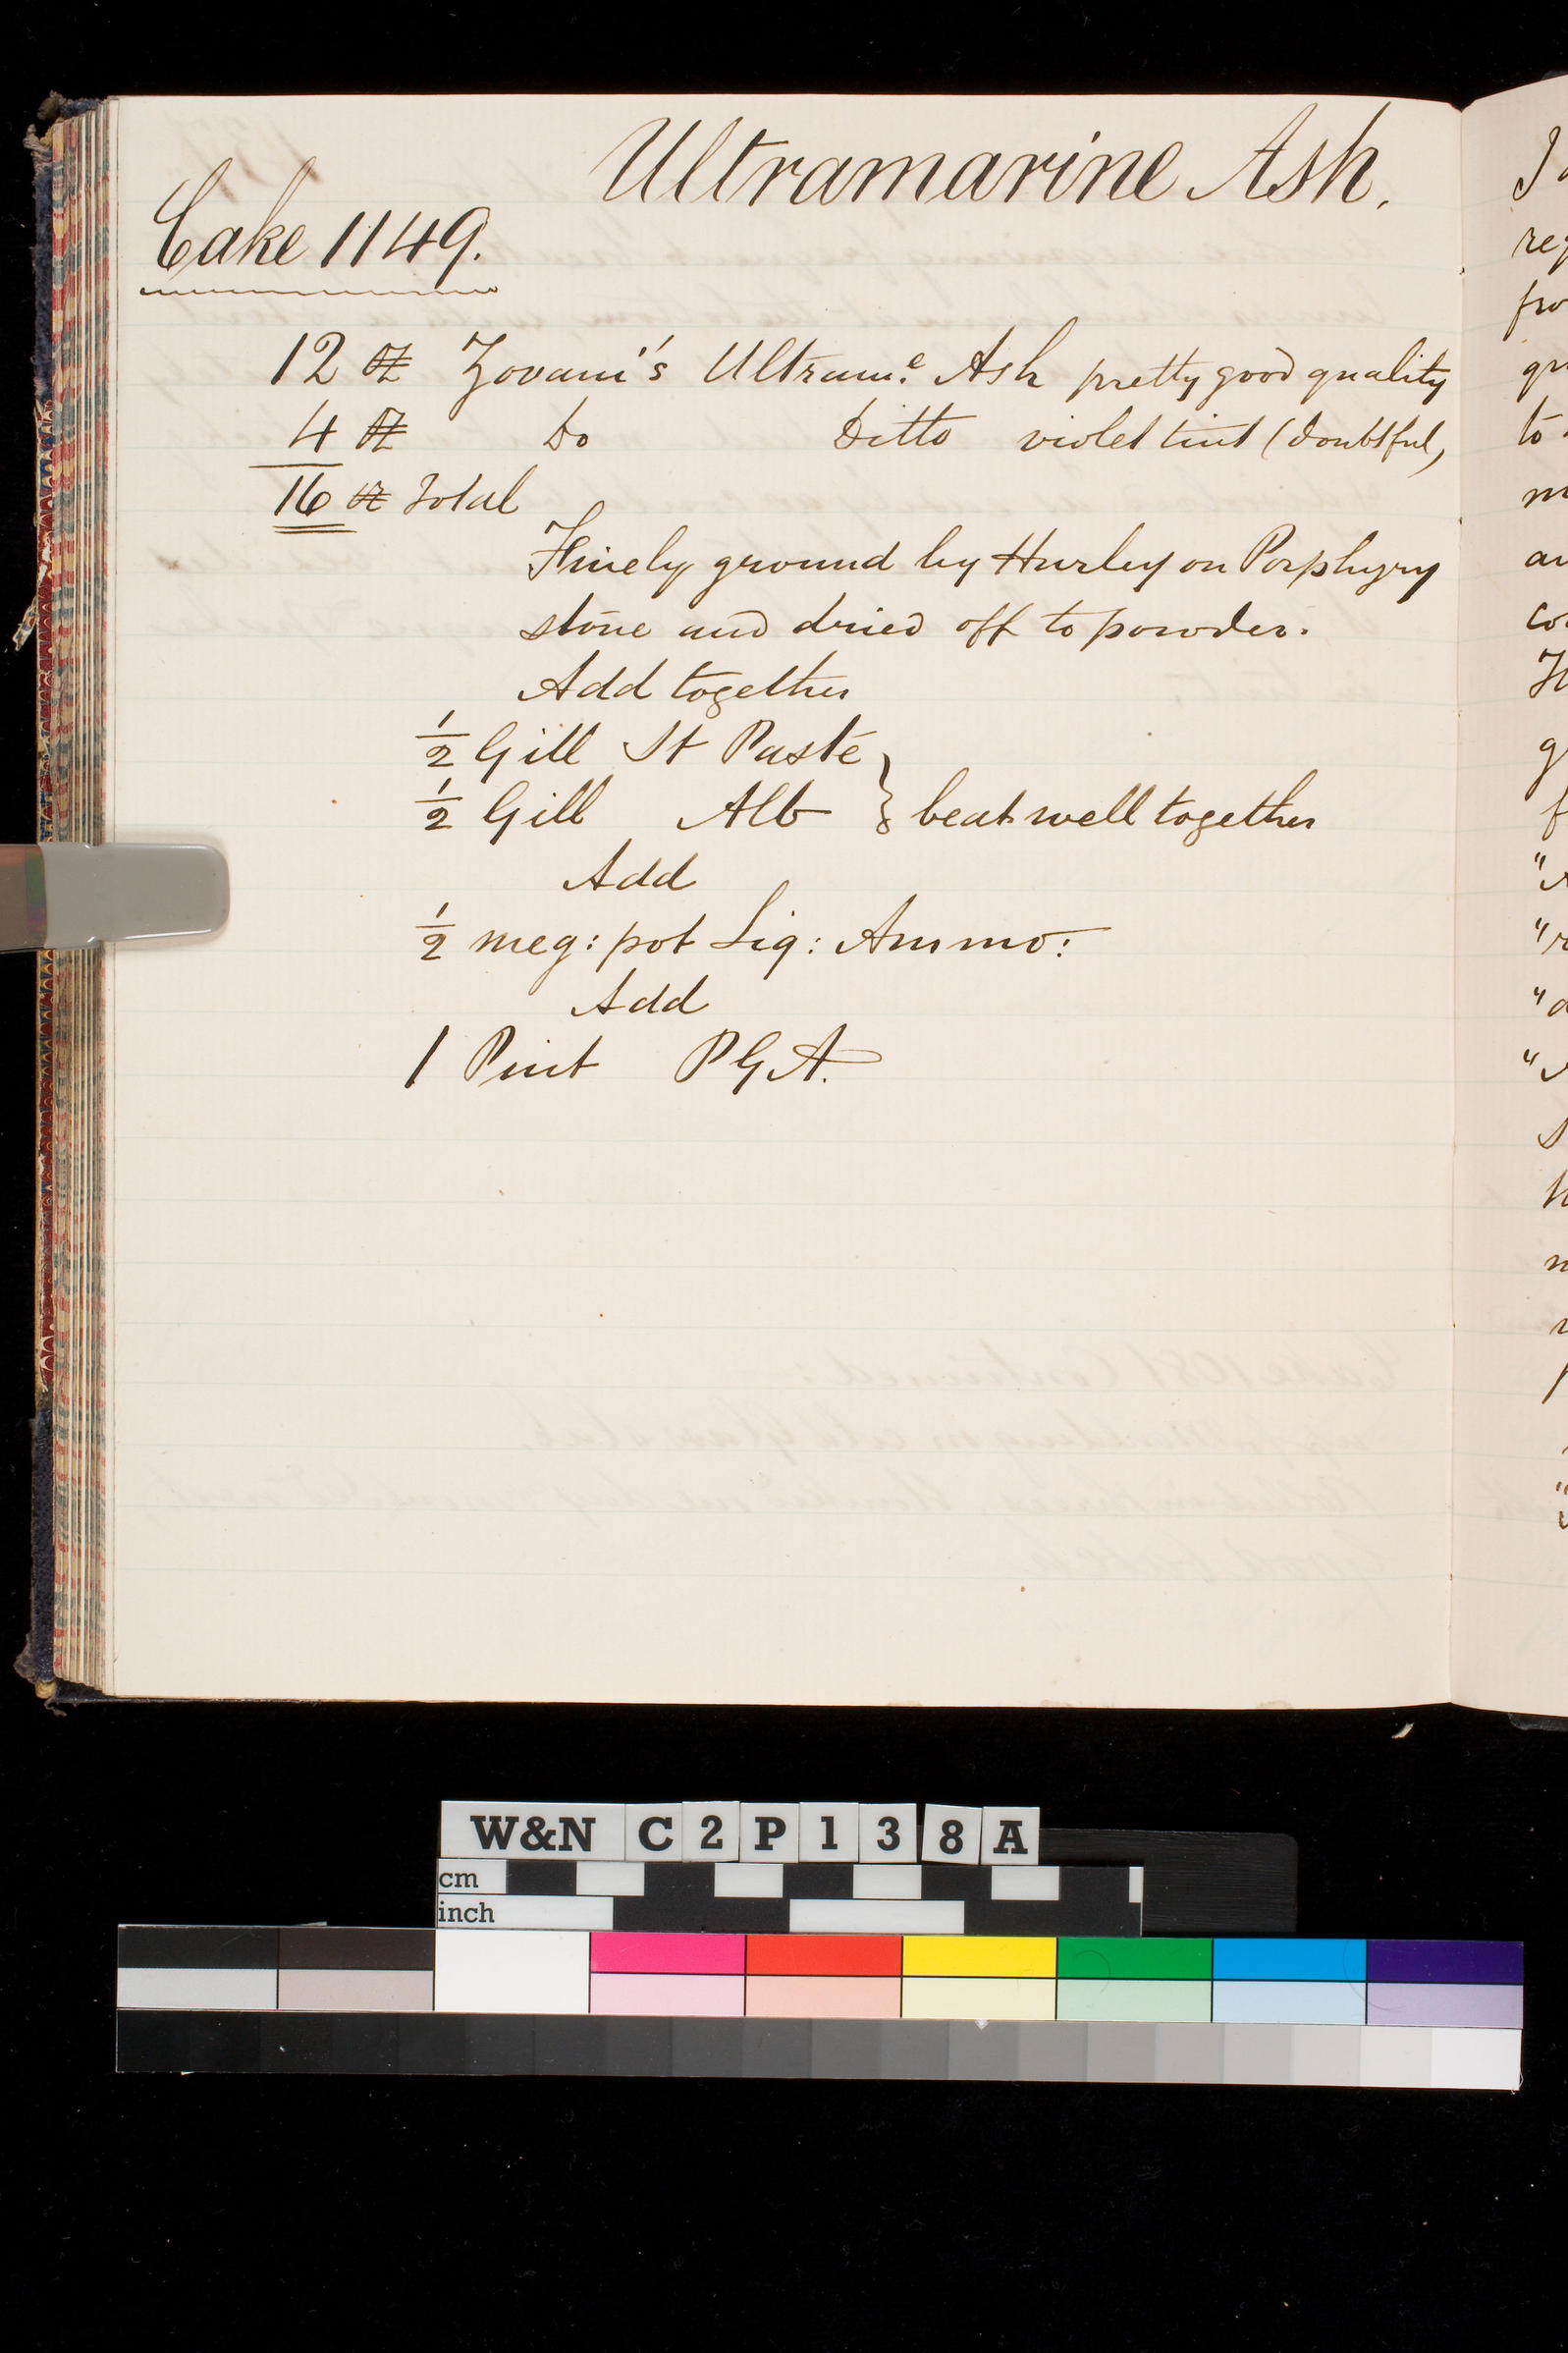 Ultramarine Ash.
Cake 1149.
12 oz Zovani's Ultram.e Ash pretty good quality
4 oz Do Ditto violet tint (doubtful,
16 oz total
Finely ground by Hurley on Porphyry
stone and dried off to powder.
Add together
1/2 Gill St Paste
1/2 Gill Alb } beat well together
Add
1/2 meg: pot Liq: Ammo:
Add
1 Pint P G A.
W&N C2P138A
cm
inch